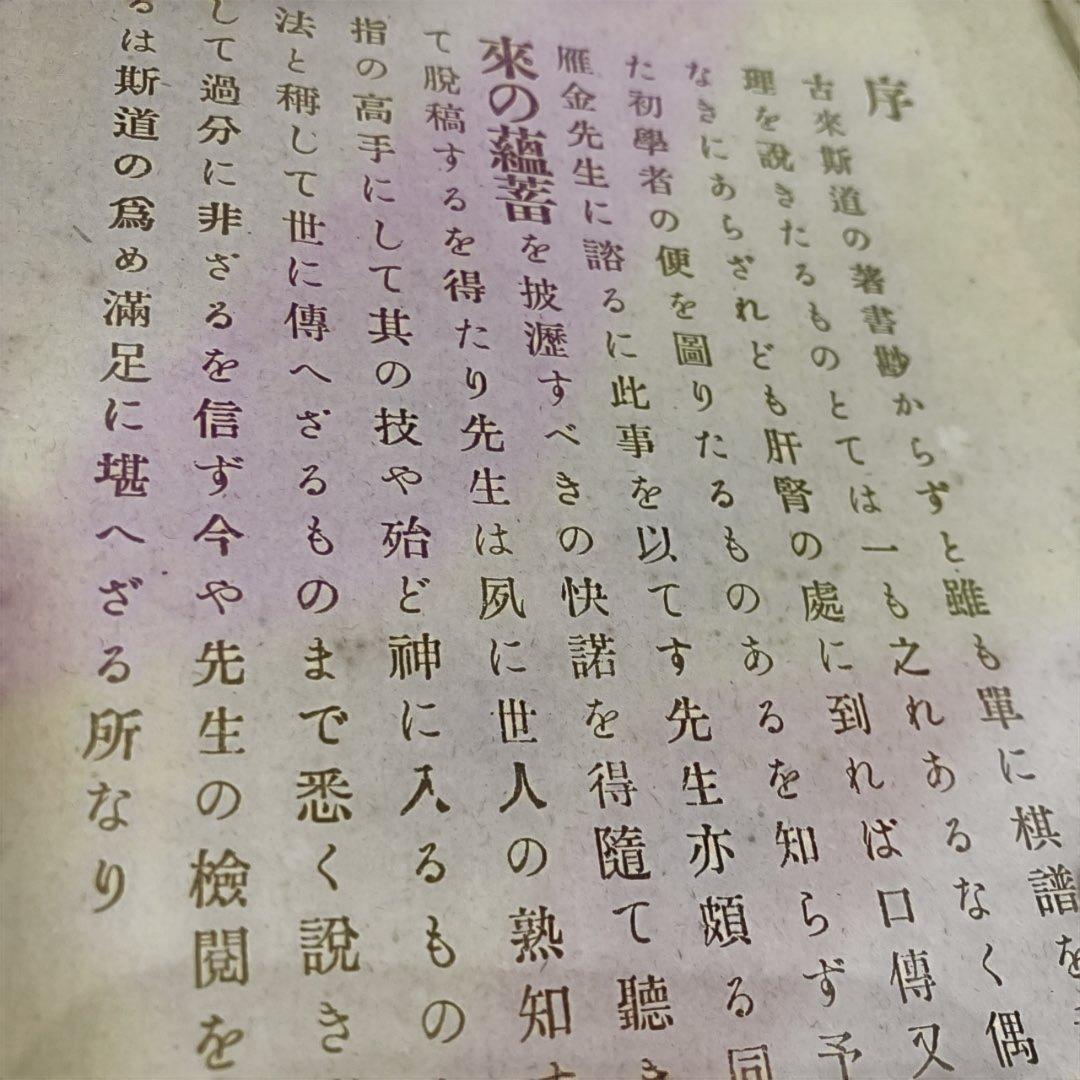 序
古來斯道の著書尠からずと雖も單に棋譜を
理を說きたるものとては一も之れあるなく偶
なきにあらざれども肝腎の處に到れば口傳又
た初學者の便を圖りたるものあるを知らず予
雁金先生に諮るに此事を以てす先生亦頗る同
來の蘊蓄を披瀝すべきの快諾を得隨て聽き
て脫稿するを得たり先生は夙に世人の熟知す
指の高手にして其の技や殆ど神に入るもの
法と稱して世に傳へざるものまで悉く說き
して過分に非ざるを信ず今や先生の檢閱を
るは斯道の爲め滿足に堪へざる所なり